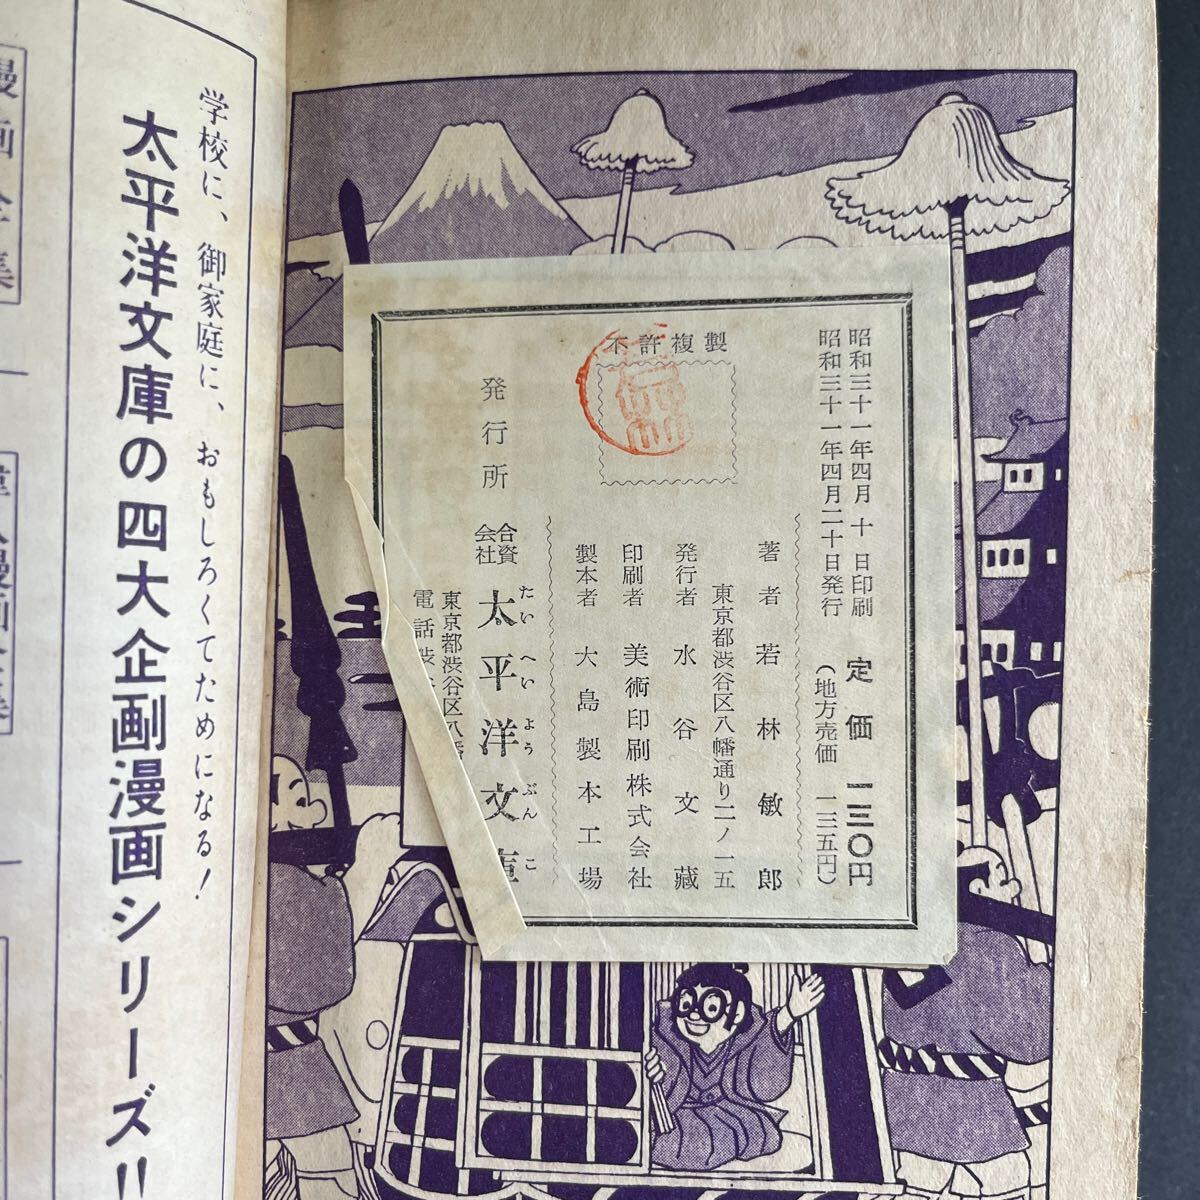 昭和三十一年四月十日印刷
昭和三十一年四月二十日発行
定価一三〇円
（地方売価一三五円）
著者若林敏郎
東京都渋谷区八幡通り二ノ一五
発行者水谷文蔵
印刷者美術印刷株式会社
製本者大島製本工場
不許複製
発行所
合資会社太平洋文庫
たいへいようぶんこ
東京都渋谷区八幡
電話渋
学校に、御家庭に、おもしろくてためになる！
太平洋文庫の四大企画漫画シリーズ!!
漫画全集